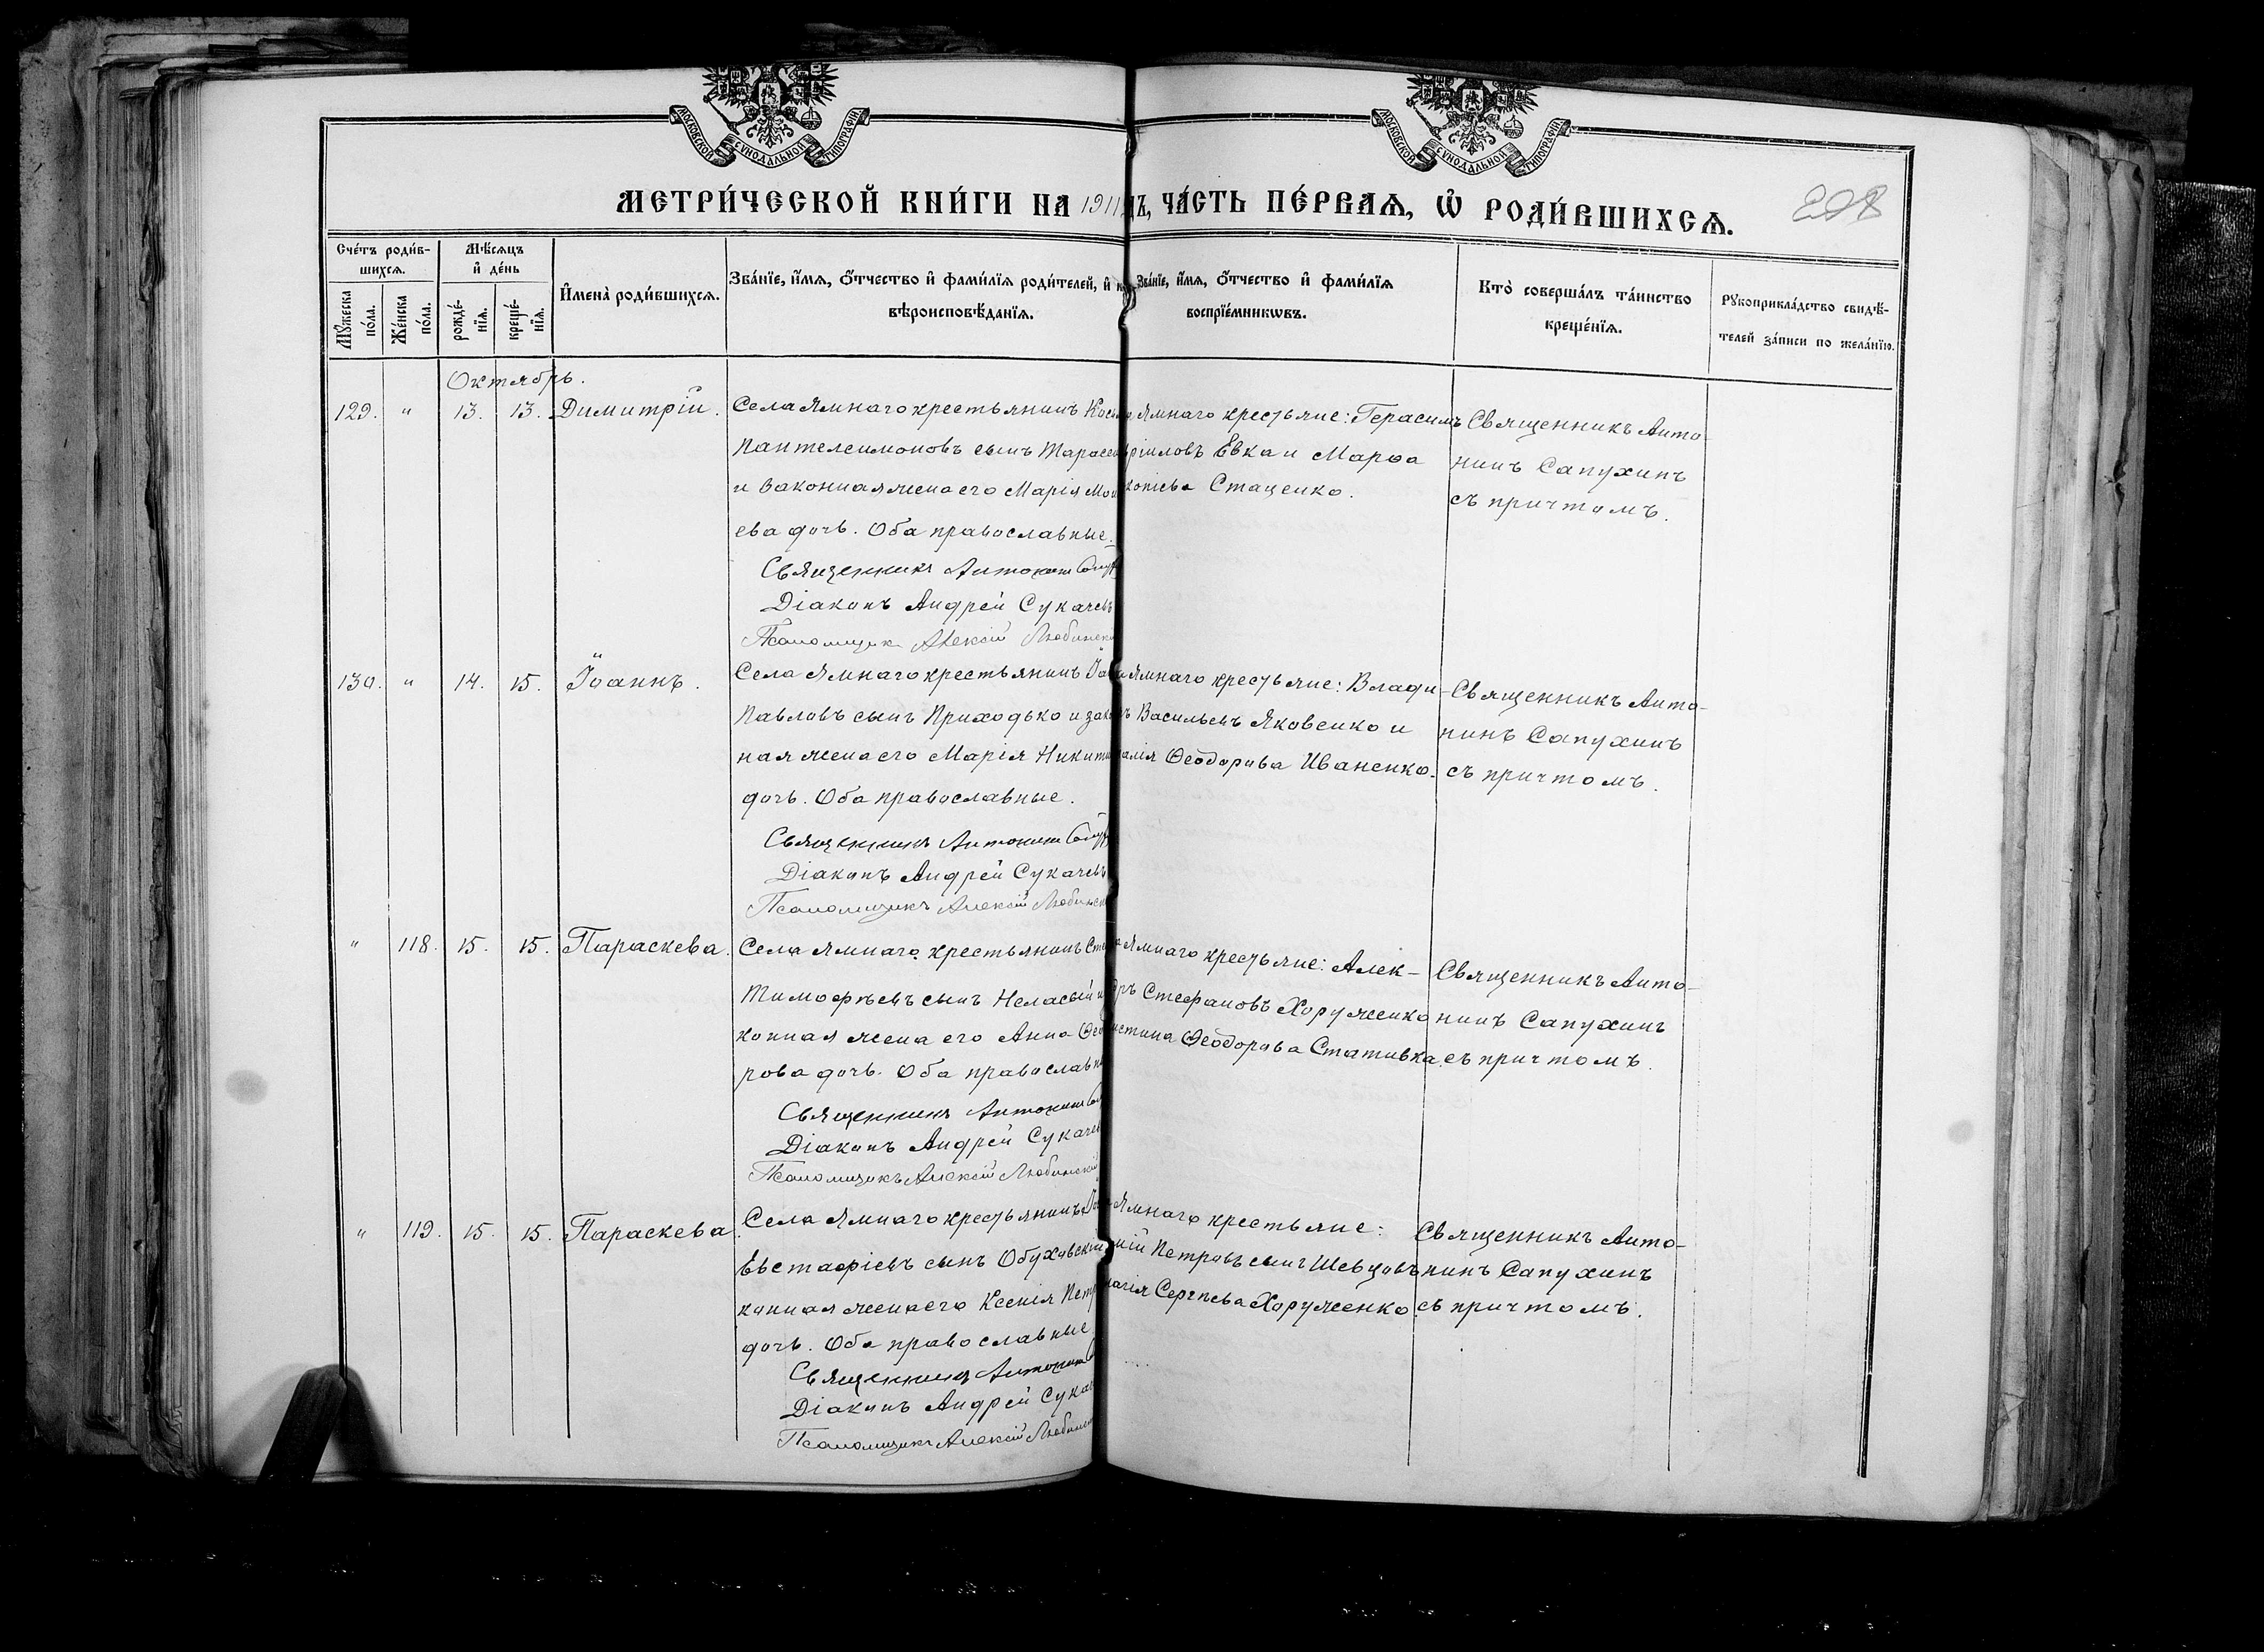 МОСКОВСКОЙ СѴНОДАЛЬНОЙ ТИПОГРАФІИ
МОСКОВСКОЙ СѴНОДАЛЬНОЙ ТИПОГРАФІИ
МЕТРИ́ЧЕСКОЙ КНИ́ГИ НА 1911 ДЪ, ЧА́СТЬ ПЕ́РВАѦ, Ѡ РОДИ́ВШИХСѦ.
Сче́тъ роди́в-
шихсѧ.
Мѣ́сѧцъ
и҆ де́нь
И҆мена̀ роди́вшихсѧ.
Зва́нїе, и҆́мѧ, ѻ҆́тчество и҆ фами́лїѧ роди́телей, и҆
вѣроисповѣ́данїѧ.
Зва́нїе, и҆́мѧ, ѻ҆́тчество и҆ фами́лїѧ
воспрїе́мникѡвъ.
Кто̀ соверша́лъ та́инство
креще́нїѧ.
Рꙋкоприкла́дство свидѣ́-
телей за́писи по жела́нїю.
Мꙋ́жеска
по́ла.
Же́нска
по́ла.
рожде́-
нїѧ.
креще́-
нїѧ.
Октябрь.
129. " 13. 13. Димитрій. Села Ямнаго крестьянинъ
Пантелеимоновъ сынъ
и законная жена его Марія
ева дочь. Оба православные.
Священникъ Антонинъ
Діаконъ Андрей Сукачевъ
Псаломщикъ Алексій
Ямнаго крестьяне: Герасимъ
Евка и Марѳа
Стаценко.
Священникъ Анто-
нинъ Сапухинъ
съ причтомъ.
130. " 14. 15. Іоаннъ. Села Ямнаго крестьянинъ
Павловъ сынъ Приходько и
ная жена его Марія
дочь. Оба православные.
Священникъ Антонинъ
Діаконъ Андрей Сукачевъ
Псаломщикъ Алексій
Ямнаго крестьяне: Влади-
Васильевъ Яковенко и
Ѳеодорова Иваненко.
Священникъ Анто-
нинъ Сапухинъ
съ причтомъ.
" 118. 15. 15. Параскева. Села Ямнаго крестьянинъ
Тимофѣевъ сынъ
конная жена его Анна
рова дочь. Оба
Священникъ Антонинъ
Діаконъ Андрей
Псаломщикъ Алексій Любинскій
Ямнаго крестьяне: Алек-
Стефановъ Хоруженко
Ѳеодорова Стативка.
Священникъ Анто-
нинъ Сапухинъ
съ причтомъ.
" 119. 15. 15. Параскева. Села Ямнаго крестьянинъ
Евстафіевъ сынъ
конная жена его Ксенія
дочь. Оба православные
Священникъ Антонинъ
Діаконъ Андрей
Псаломщикъ Алексій
Ямнаго крестьяне:
Петровъ сынъ Шевцовъ
Сергѣева Хоруженко.
Священникъ Анто-
нинъ Сапухинъ
съ причтомъ.